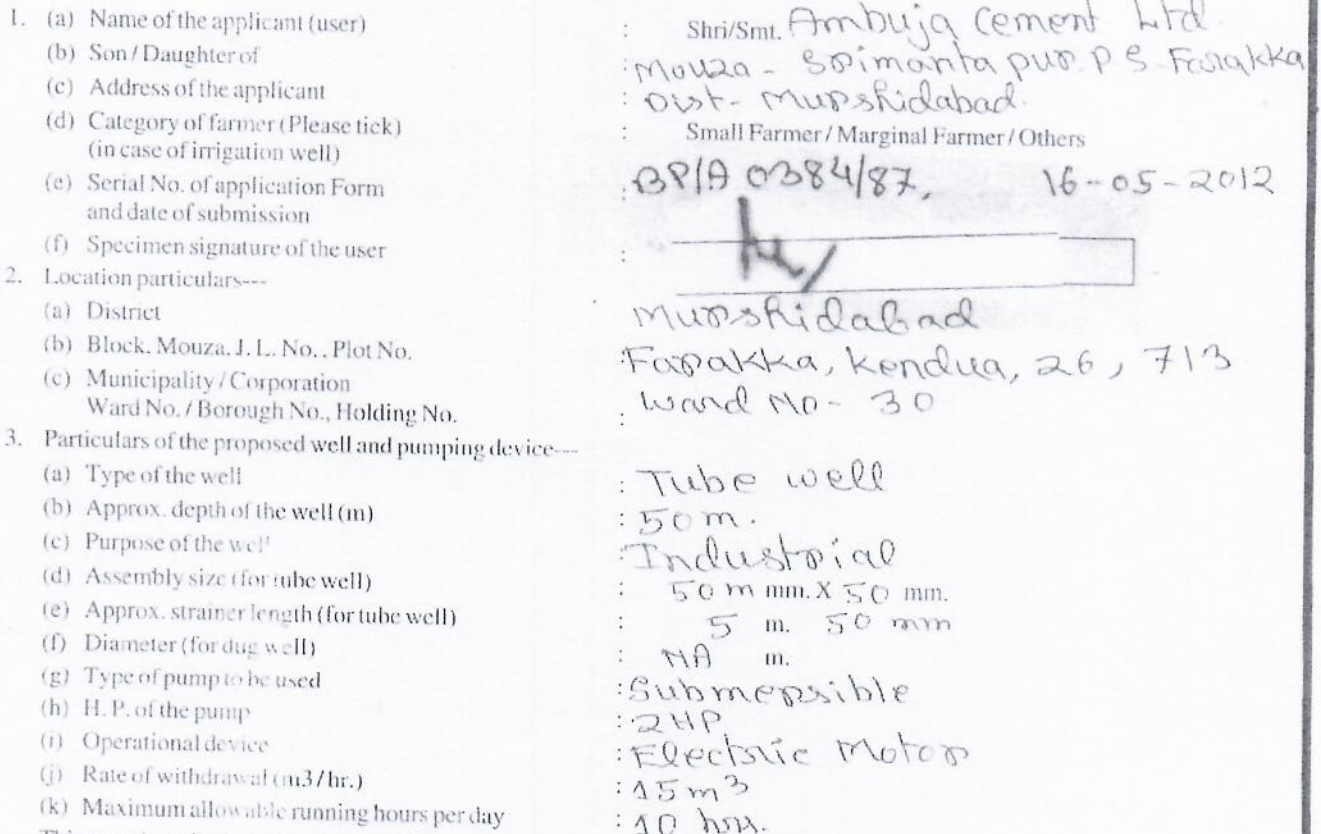 1. (a) Name of the applicant (user) : Shri/Smt. Ambuja Cement Ltd.
(b) Son / Daughter of : Mouza - Srimantapur. P S - Farakka
(c) Address of the applicant : Dist - Murshidabad.
(d) Category of farmer (Please tick) : Small Farmer / Marginal Farmer / Others
(in case of irrigation well)
(e) Serial No. of application Form : BP/A 0384/87, 16-05-2012
and date of submission
(f) Specimen signature of the user :
2. Location particulars---
(a) District : Murshidabad
(b) Block. Mouza. J. L. No. , Plot No. : Farakka, Kendua, 26, 713
(c) Municipality / Corporation Ward No - 30
Ward No. / Borough No., Holding No. :
3. Particulars of the proposed well and pumping device---
(a) Type of the well : Tube well
(b) Approx. depth of the well (m) : 50 m.
(c) Purpose of the well : Industrial
(d) Assembly size (for tube well) : 50 m mm. X 50 mm.
(e) Approx. strainer length (for tube well) : 5 m. 50 mm
(f) Diameter (for dug well) : NA m.
(g) Type of pump to be used : Submersible
(h) H. P. of the pump : 2 HP
(i) Operational device : Electric Motor
(j) Rate of withdrawal (m3/hr.) : 15 m3
(k) Maximum allowable running hours per day : 10 hrs.